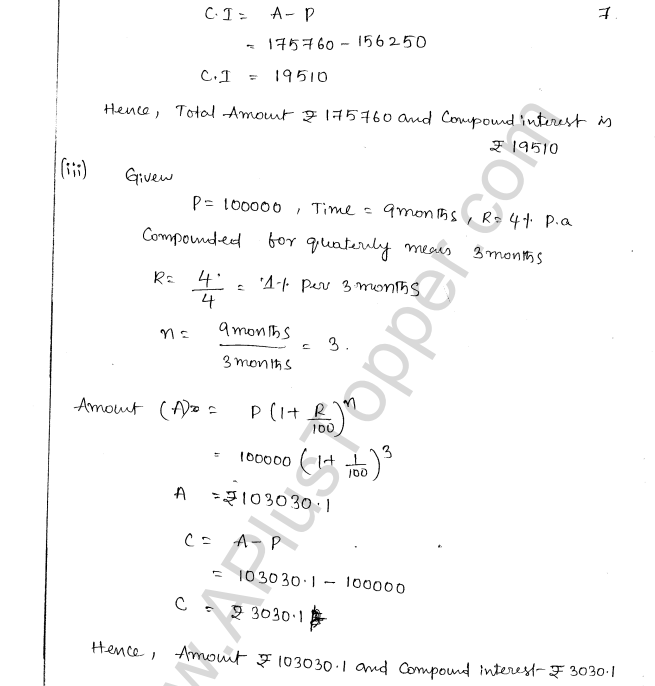 C.I = A - P
7
= 175760 - 156250
C.I = 19510
Hence, Total Amount ₹ 175760 and Compound interest is
₹ 19510
(iii) Given
P = 100000, Time = 9months, R = 4% p.a
Compounded for quaterly means 3months
R = 4/4 = 1% per 3 months
n = 9months/3months = 3.
Amount (A) = P(1+ R/100)^n
= 100000 (1+ 1/100)^3
A = ₹103030.1
C = A - P
= 103030.1 - 100000
C = ₹ 3030.1
Hence, Amount ₹ 103030.1 and Compound interest - ₹ 3030.1
www.APlusTopper.com